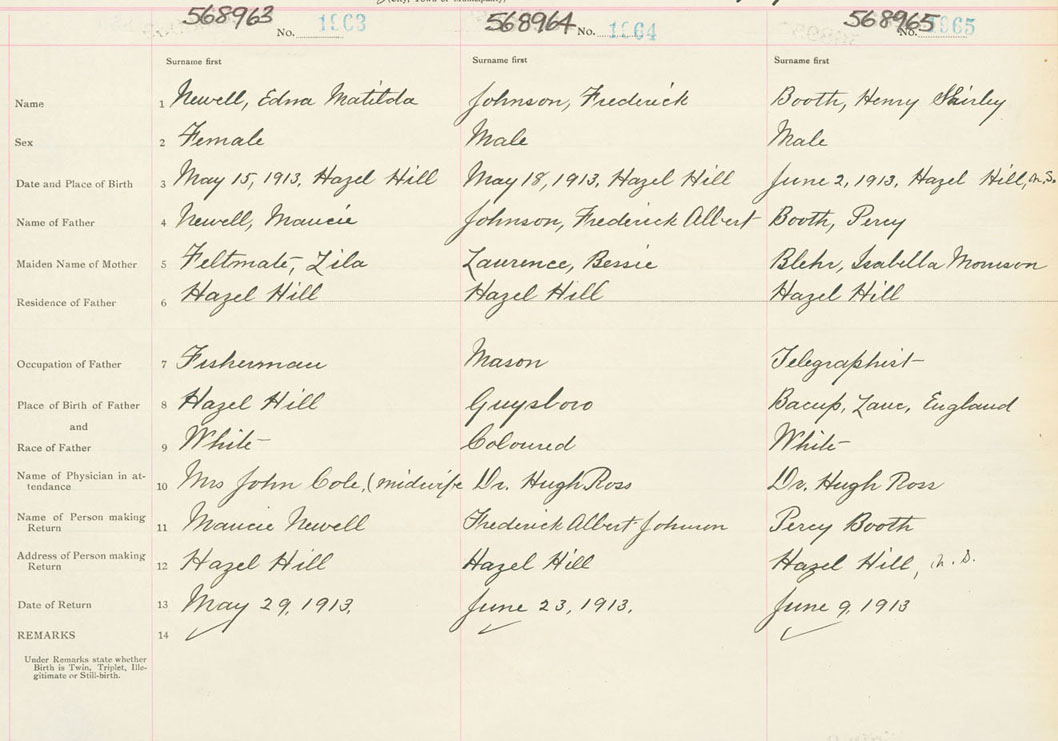 568963 No. 1963 568964 No. 1964 568965 No. 1965
Surname first Surname first Surname first
Name 1 Newell, Edna Matilda Johnson, Frederick Booth, Henry Shirley
Sex 2 Female Male Male
Date and Place of Birth 3 May 15, 1913, Hazel Hill May 18, 1913, Hazel Hill June 2, 1913, Hazel Hill, N.S.
Name of Father 4 Newell, Maucie Johnson, Frederick Albert Booth, Percy
Maiden Name of Mother 5 Feltmate, Lila Laurence, Bessie Blehr, Isabella Morrison
Residence of Father 6 Hazel Hill Hazel Hill Hazel Hill
Occupation of Father 7 Fisherman Mason Telegraphist
Place of Birth of Father 8 Hazel Hill Guysboro Bacup, Lanc, England
and
Race of Father 9 White Coloured White
Name of Physician in at-
tendance 10 Mrs John Cole, (midwife Dr. Hugh Ross Dr. Hugh Ross
Name of Person making
Return 11 Maucie Newell Frederick Albert Johnson Percy Booth
Address of Person making
Return 12 Hazel Hill Hazel Hill Hazel Hill, N.S.
Date of Return 13 May 29, 1913. June 23, 1913. June 9, 1913
REMARKS 14
Under Remarks state whether
Birth is Twin, Triplet, Ille-
gitimate or Still-birth.